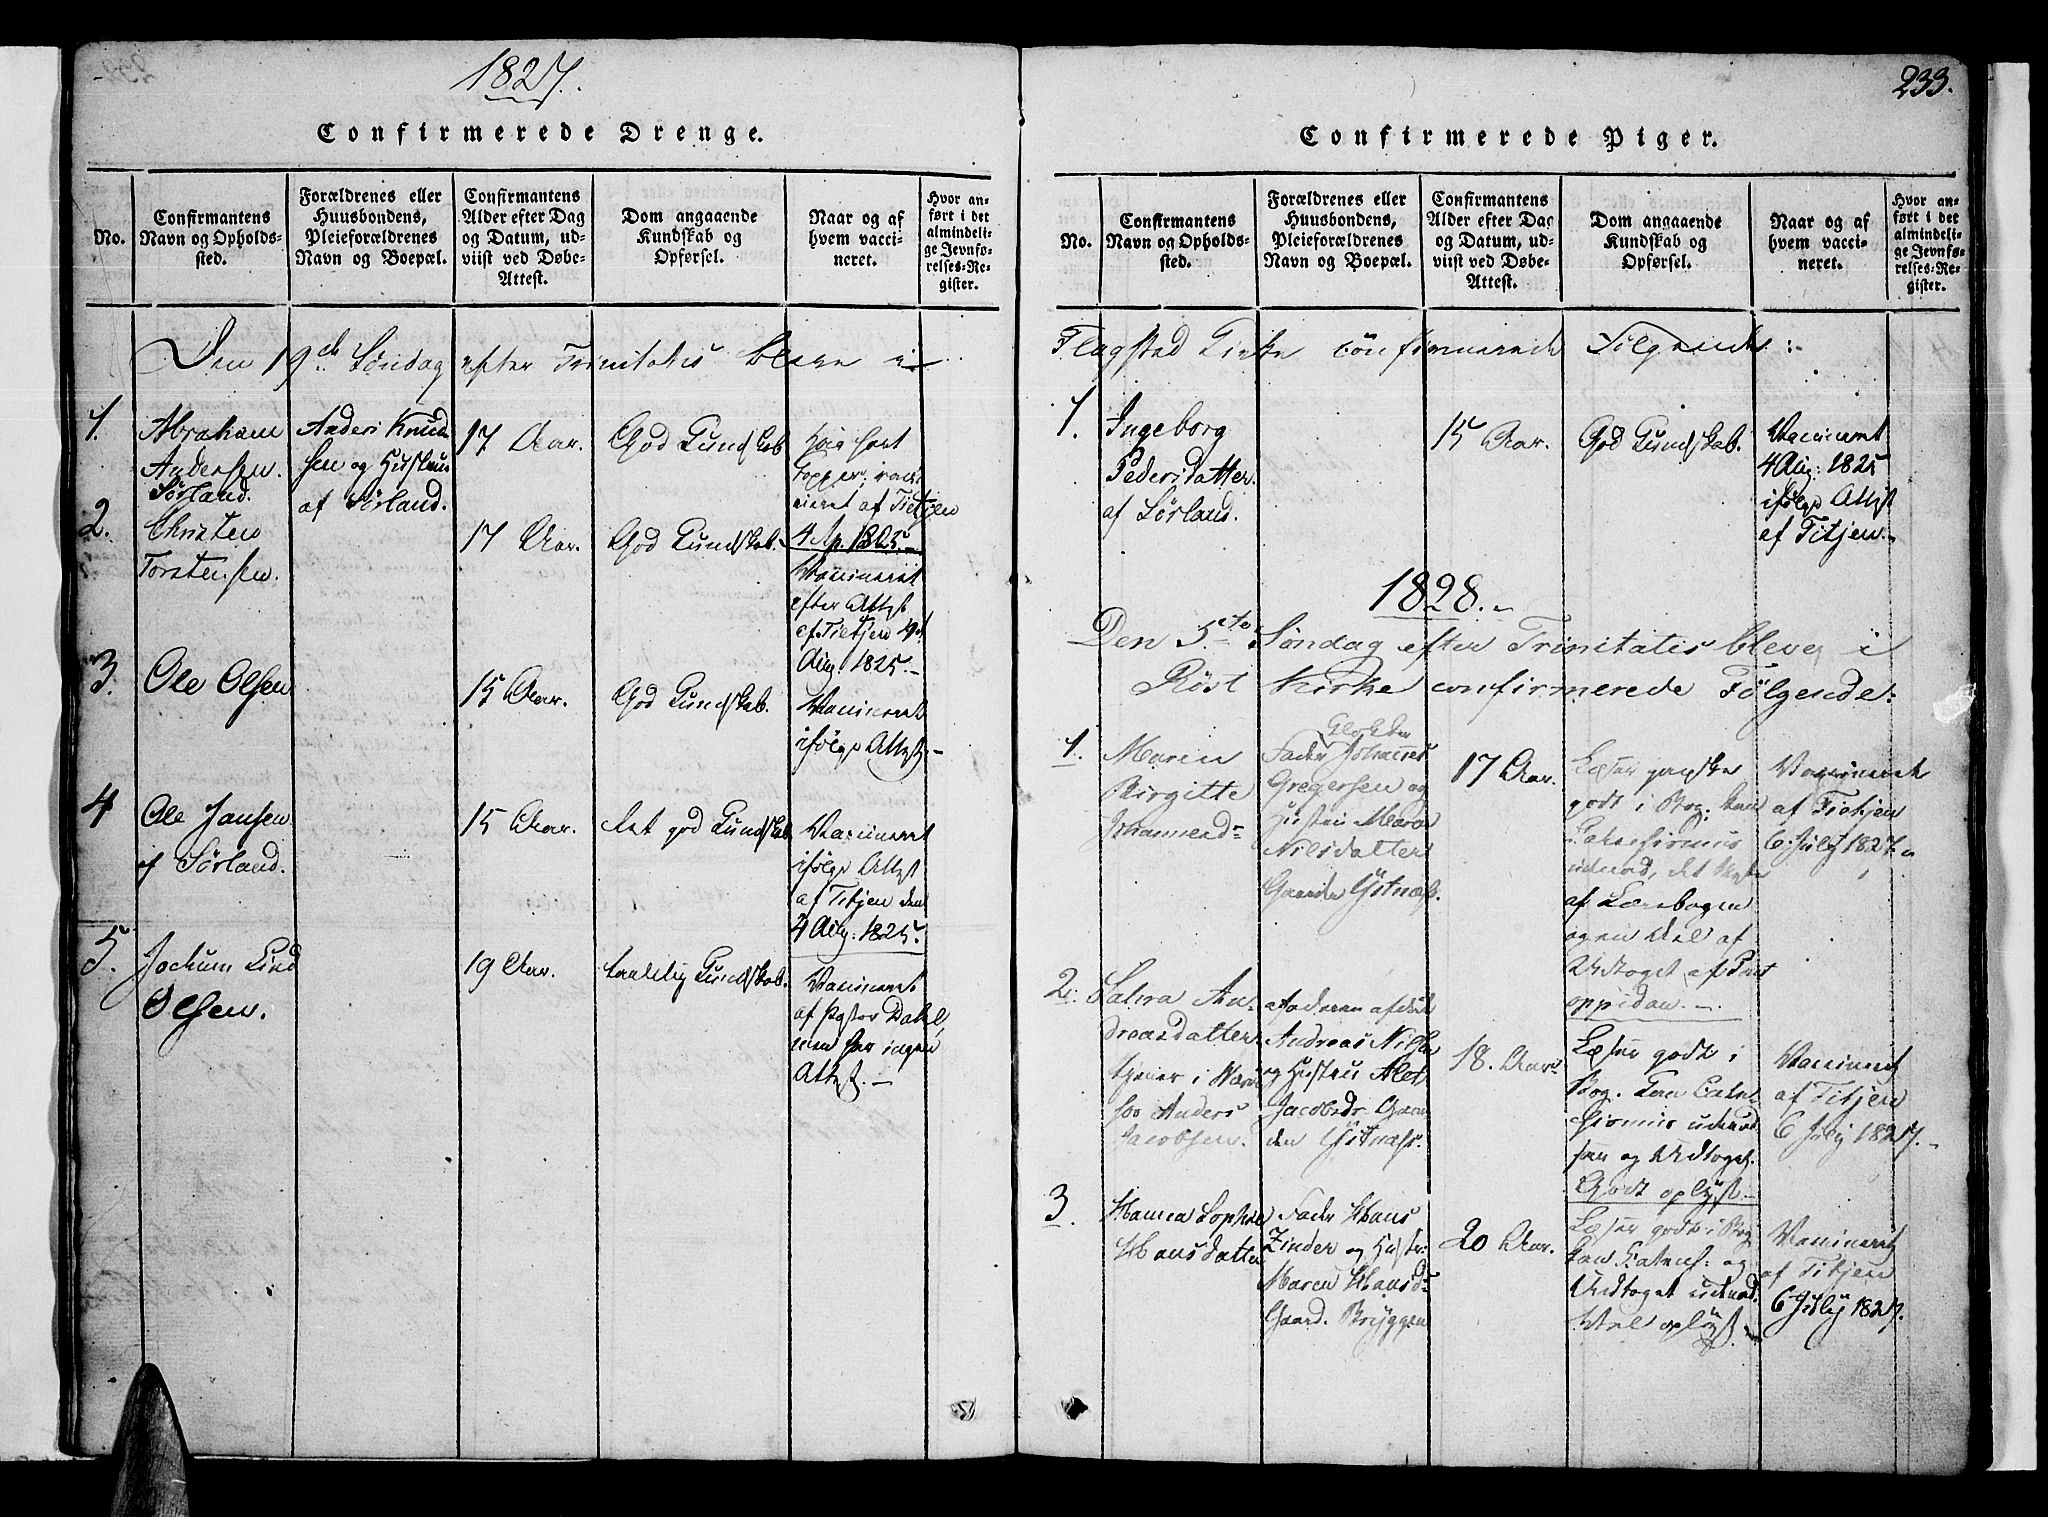 1827.
Confirmerede Drenge.
No.
Confirmantens
Navn og Opholds-
sted.
Forældrenes eller
Huusbondens,
Pleieforældrenes
Navn og Boepæl.
Confirmantens
Alder efter Dag
og Datum, ud-
viist ved Døbe-
Attest.
Dom angaaende
Kundskab og
Opførsel.
Naar og af
hvem vacci-
neret.
Hvor an-
ført i det
almindeli-
ge Jevnfø-
relses-Re-
gister.
Den 19de Søndag efter Trinitatis bleve i
1.
Abraham
Andersen
Sørland.
Anders Knud-
sen og Hustrue
af Sørland.
17 Aar.
God Kundskab
vacci-
neret af Tietjen
4 Ap. 1825.-
2.
Christen
Torstensen.
17 Aar.
God Kundskab.
Vaccineret
efter Attest
af Tietjen 4de
Aug. 1825.-
3.
Ole Olsen
15 Aar.
God Kundskab.
Vaccineret
ifølge Attest.-
4
Ole Jansen
af Sørland.
15 Aar.
Ret god Kundskab
Vaccineret
ifølge Attest
af Titjen den
4 Aug: 1825.
5.
Jochum Lind
Olsen.
19 Aar.
taalelig Kundskab.
Vaccineret
af Pastor Dahl,
men har ingen
Attest.-
233.
Confirmerede Piger.
No.
Confirmantens
Navn og Opholds-
sted.
Forældrenes eller
Huusbondens,
Pleieforældrenes
Navn og Boepæl.
Confirmantens
Alder efter Dag
og Datum, ud-
viist ved Døbe-
Attest.
Dom angaaende
Kundskab og
Opførsel.
Naar og af
hvem vacci-
neret.
Hvor an-
ført i det
almindeli-
ge Jevnfø-
relses-Re-
gister.
Flagstad Kirke confirmerede Følgende:
1.
Ingeborg
Pedersdatter
af Sørland.
15 Aar.
God Kundskab.
Vaccineret
4 Aug: 1825
ifølge Attest
af Titjen.-
1828.-
Den 5te Søndag efter Trinitatis bleve i
Röst Kirke confirmerede Følgende:
1.
Maren
Birgitte
Johannesd=
Fader Johannes
Gregersen og
Hustru Maren
Nilsdatter
Gaarden Ystnæss.
17 Aar.
Læser ganske
godt i Bog: kan
udenad, det
af Lærebogen
og en Deel af
Udtoget af
Vaccineret
af Tietjen
6 July 1827.
2.
An-
dreasdatter
tjener i
hos Anders
Jacobsen.
Andreas Nilsen
og Hustru Alet
Jacobsdr Gaar-
den Ystnæss.
18. Aar.
Læser godt i
Bog. kan Cate-
chismus udenad
og Udtoget.
Godt oplyst-
Vaccineret
af Titjen
6 July 1827.-
3.
Hanna Sophie
Hansdatter
Fader Hans
Zinder og Hustr:
Maren Hansd=
Gaard. Bryggen
20 Aar.
Læser godt i Bog
kan Catech: og
Udtoget udenad
Vel oplyst.
Vaccineret
af Titjen
6 July 1827.